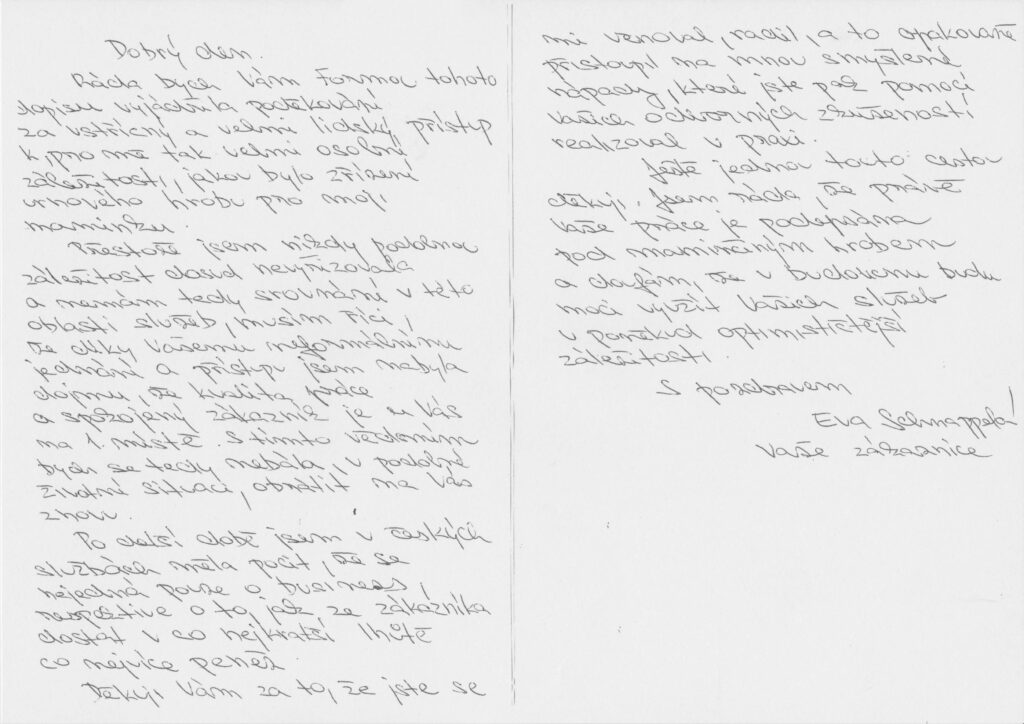 Dobrý den.
Ráda bych Vám formou tohoto
dopisu vyjádřila poděkování
za vstřícný a velmi lidský přístup
k, pro mě tak velmi osobní
záležitosti, jakou bylo zřízení
urnového hrobu pro moji
maminku.
Přestože jsem nikdy podobnou
záležitost dosud nevyřizovala
a nemám tedy srovnání v této
oblasti služeb, musím říci,
že díky Vašemu neformálnímu
jednání a přístupu jsem nabyla
dojmu, že kvalita práce
a spokojený zákazník je u Vás
na 1. místě. S tímto vědomím
bych se tedy nebála, v podobné
životní situaci, obrátit na Vás
znovu.
Po delší době jsem v českých
službách měla pocit, že se
nejedná pouze o business,
respektive o to, jak ze zákazníka
dostat v co nejkratší lhůtě
co nejvíce peněz.
Děkuji Vám za to, že jste se
mi venoval, radil, a to opakovaně
přistoupil na mnou smyšlené
nápady, které jste pak pomocí
Vašich odborných zkušeností
realizoval v praxi.
Ještě jednou touto cestou
děkuji. Jsem ráda, že právě
Vaše práce je podepsána
pod maminčiným hrobem
a doufám, že v budoucnu budu
moci využít Vašich služeb
v poněkud optimističtější
záležitosti.
S pozdravem
Eva Schnappelová
Vaše zákaznice